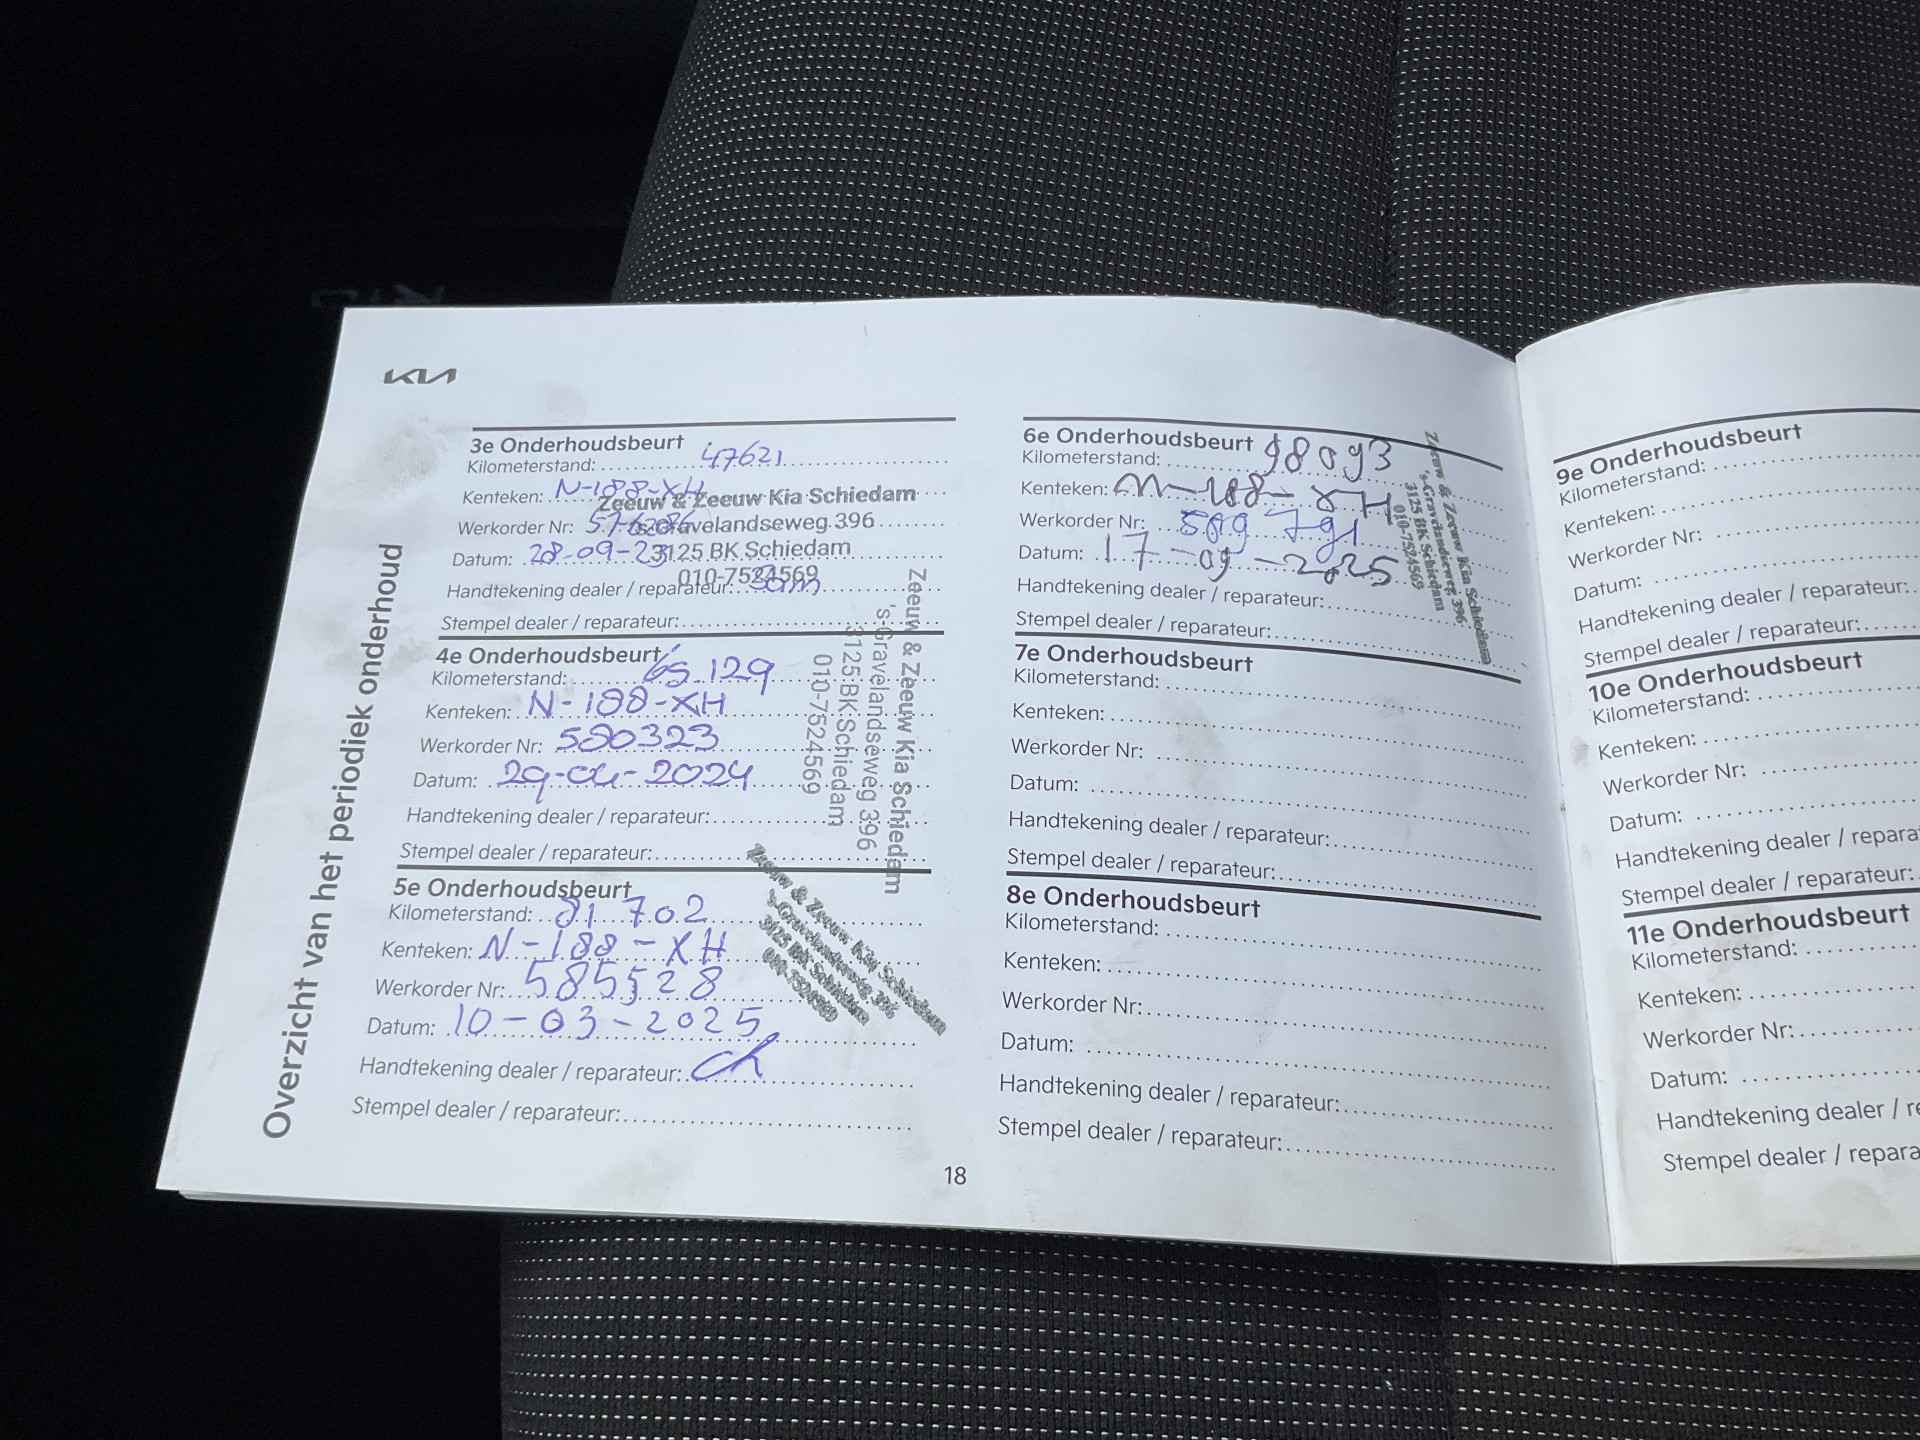 KIA
Overzicht van het periodiek onderhoud
3e Onderhoudsbeurt
Kilometerstand: 47621
Kenteken: N-188-XH
Werkorder Nr:
Datum: 28-09-23
Handtekening dealer / reparateur:
Stempel dealer / reparateur:
Zeeuw & Zeeuw Kia Schiedam
's-Gravelandseweg 396
3125 BK Schiedam
010-7524569
4e Onderhoudsbeurt
Kilometerstand: 65.129
Kenteken: N-188-XH
Werkorder Nr: 580323
Datum: 29-04-2024
Handtekening dealer / reparateur:
Stempel dealer / reparateur:
Zeeuw & Zeeuw Kia Schiedam
's-Gravelandseweg 396
3125 BK Schiedam
010-7524569
5e Onderhoudsbeurt
Kilometerstand: 81 702
Kenteken: N-188-XH
Werkorder Nr: 585528
Datum: 10-03-2025
Handtekening dealer / reparateur:
Stempel dealer / reparateur:
Zeeuw & Zeeuw Kia Schiedam
's-Gravelandseweg 396
3125 BK Schiedam
010-7524569
6e Onderhoudsbeurt
Kilometerstand: 98093
Kenteken: N-188-XH
Werkorder Nr: 589791
Datum: 17-09-2025
Handtekening dealer / reparateur:
Stempel dealer / reparateur:
Zeeuw & Zeeuw Kia Schiedam
's-Gravelandseweg 396
3125 BK Schiedam
010-7524569
7e Onderhoudsbeurt
Kilometerstand:
Kenteken:
Werkorder Nr:
Datum:
Handtekening dealer / reparateur:
Stempel dealer / reparateur:
8e Onderhoudsbeurt
Kilometerstand:
Kenteken:
Werkorder Nr:
Datum:
Handtekening dealer / reparateur:
Stempel dealer / reparateur:
18
9e Onderhoudsbeurt
Kilometerstand:
Kenteken:
Werkorder Nr:
Datum:
Handtekening dealer / reparateur:
Stempel dealer / reparateur:
10e Onderhoudsbeurt
Kilometerstand:
Kenteken:
Werkorder Nr:
Datum:
Handtekening dealer / repara
Stempel dealer / reparateur:
11e Onderhoudsbeurt
Kilometerstand:
Kenteken:
Werkorder Nr:
Datum:
Handtekening dealer / re
Stempel dealer / repara